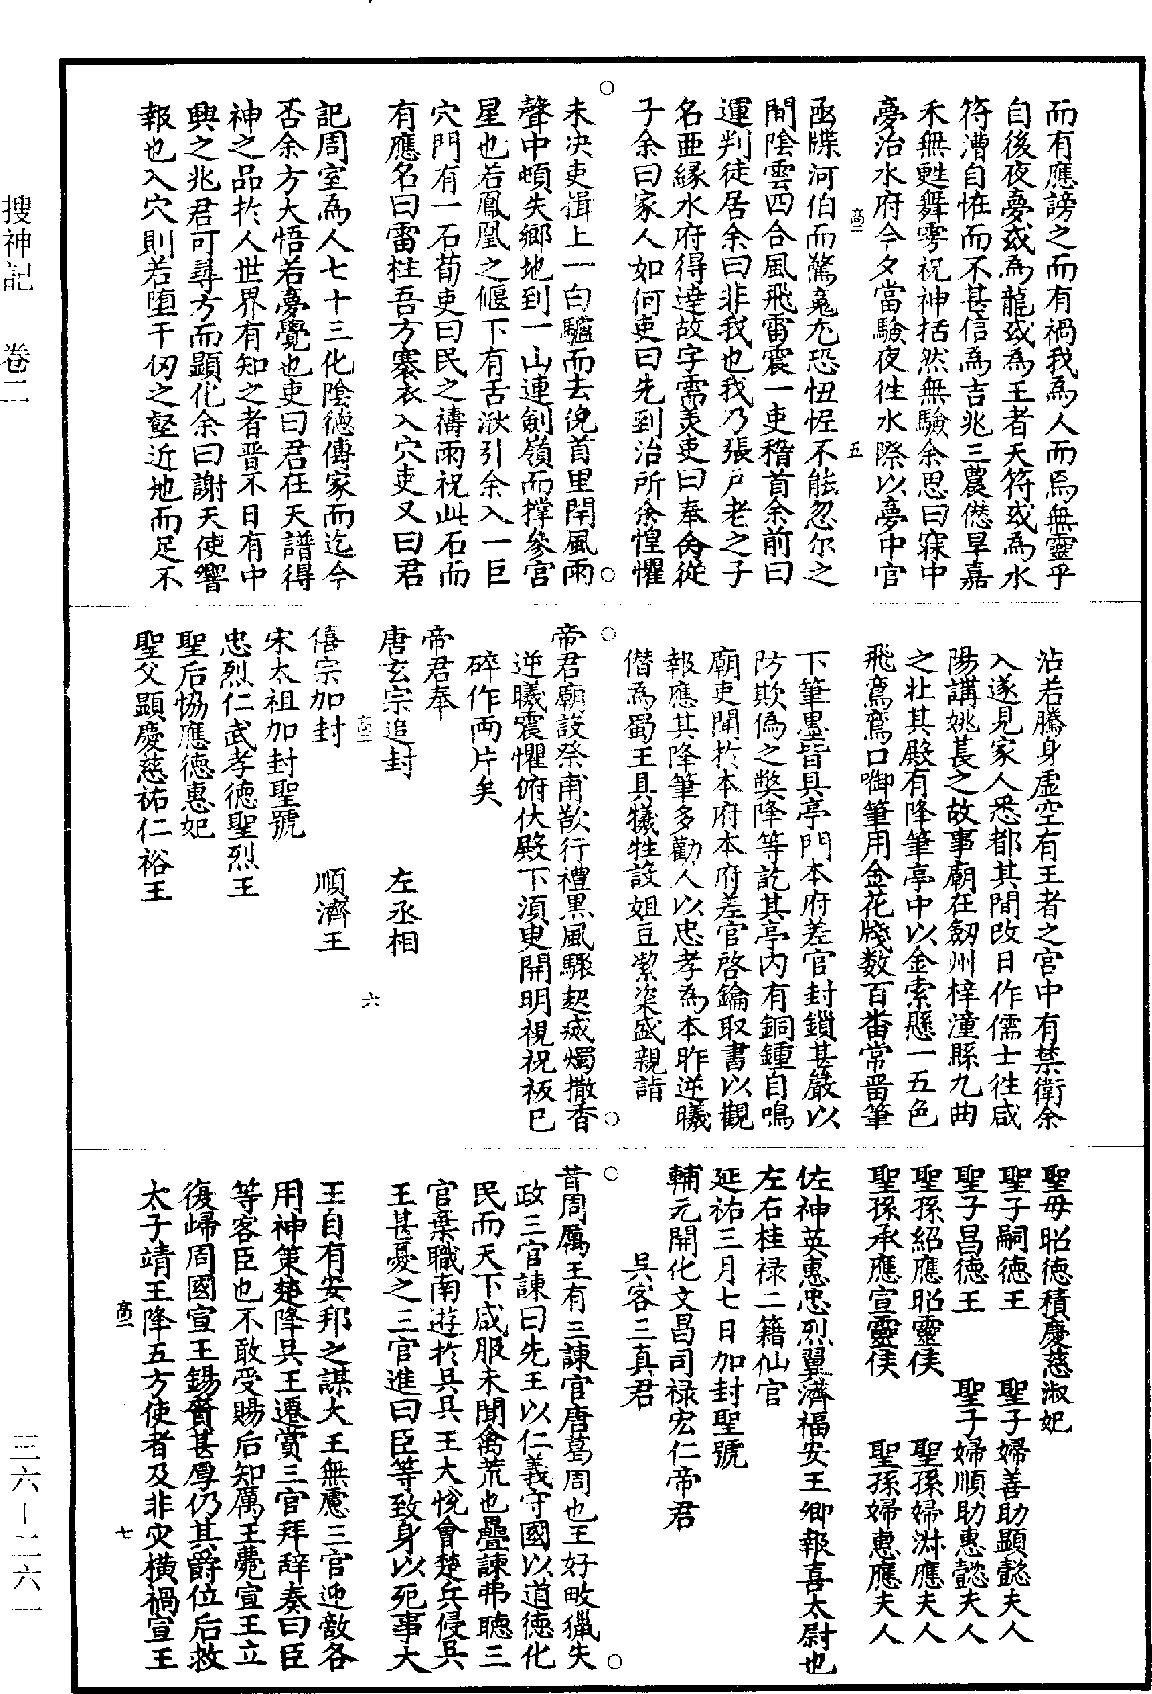 搜神記　卷二
三六—二六一
而有應謗之而有禍我為人而焉無靈乎
自後夜夢或為龍或為王者天符或為水
符漕自恠而不甚信為吉兆三農僽旱嘉
禾無甦舞雩祝神括然無驗余思曰寐中
夢治水府今夕當驗夜徃水際以夢中官
高二　五
函牒河伯而驚䰟尢恐忸怩不能忽尔之
間陰雲四合風飛雷震一吏稽首余前曰
運判徒居余曰非我也我乃張戶老之子
名亜緣水府得達故字霈羙吏曰奉命從
子余曰家人如何吏曰先到治所余惶懼
未決吏揖上一白驢而去俛首里閈風雨
聲中頓失鄉地到一山連劍嶺而撑參宮
星也若鳳凰之偃下有舌湫引余入一巨
穴門有一石荀吏曰民之禱雨祝此石而
有應名曰雷柱吾方褰衣入穴吏又曰君
記周室為人七十三化陰德傳家而迄今
否余方大悟若夢覺也吏曰君在天譜得
神之品扵人世界有知之者晋不日有中
興之兆君可尋方而顯化余曰謝天使響
報也入穴則若堕千仭之壑近地而足不
沾若騰身虛空有王者之宮中有禁衛余
入遂見家人悉都其間改日作儒士徃咸
陽講姚萇之故事廟在劒州梓潼縣九曲
之壯其殿有降筆亭中以金索懸一五色
飛鸞鸞口啣筆用金花牋数百番常畱筆
下筆墨皆具亭門本府差官封鎖甚嚴以
防欺偽之獘降等訖其亭內有銅鍾自鳴
廟吏聞扵本府本府差官啓鑰取書以觀
報應其降筆多勸人以忠孝為本昨逆曦
僭為蜀王具犧牲設俎豆潔粢盛親詣
帝君廟設祭甫歆行禮黑風驟起㓕燭撒香
逆曦震懼俯伏殿下湏臾開明視祝板已
碎作両片矣
帝君奉
唐玄宗追封　左丞相
高二　六
僖宗加封　順濟王
宋太祖加封聖號
忠烈仁武孝德聖烈王
聖后恊應德惠妃
聖父顯慶慈祐仁裕王
聖母昭德積慶慈淑妃
聖子嗣德王　聖子婦善助顯懿夫人
聖子昌德王　聖子婦順助惠懿夫人
聖孫紹應昭靈侯　聖孫婦淋應夫人
聖孫承應宣靈侯　聖孫婦惠應夫人
佐神英惠忠烈翼濟福安王卿報喜太尉也
左右桂祿二籍仙官
延祐三月七日加封聖號
輔元開化文昌司祿宏仁帝君
吳客三真君
昔周厲王有三諫官唐葛周也王好畋獵失
政三官諫曰先王以仁義守國以道德化
民而天下咸服未聞禽荒也疊諫弗聽三
官棄職南遊扵吳吳王大悅會楚兵侵吳
王甚憂之三官進曰臣等致身以死事大
王自有安邦之謀大王無慮三官迎敵各
用神策楚降吳王遷賞三官拜辞奏曰臣
等客臣也不敢受賜后知厲王薨宣王立
復歸周國宣王錫賚甚厚仍其爵位后救
太子靖王降五方使者及非灾橫禍宣王
高二　七